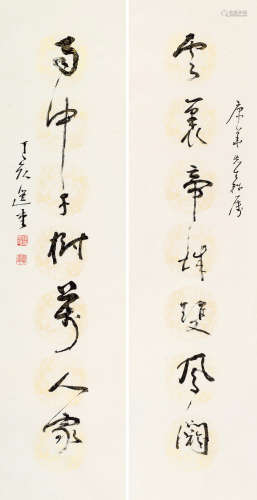 先生雅屬
雲裏帝城雙鳳闕
雨中春樹萬人家
丁亥選堂